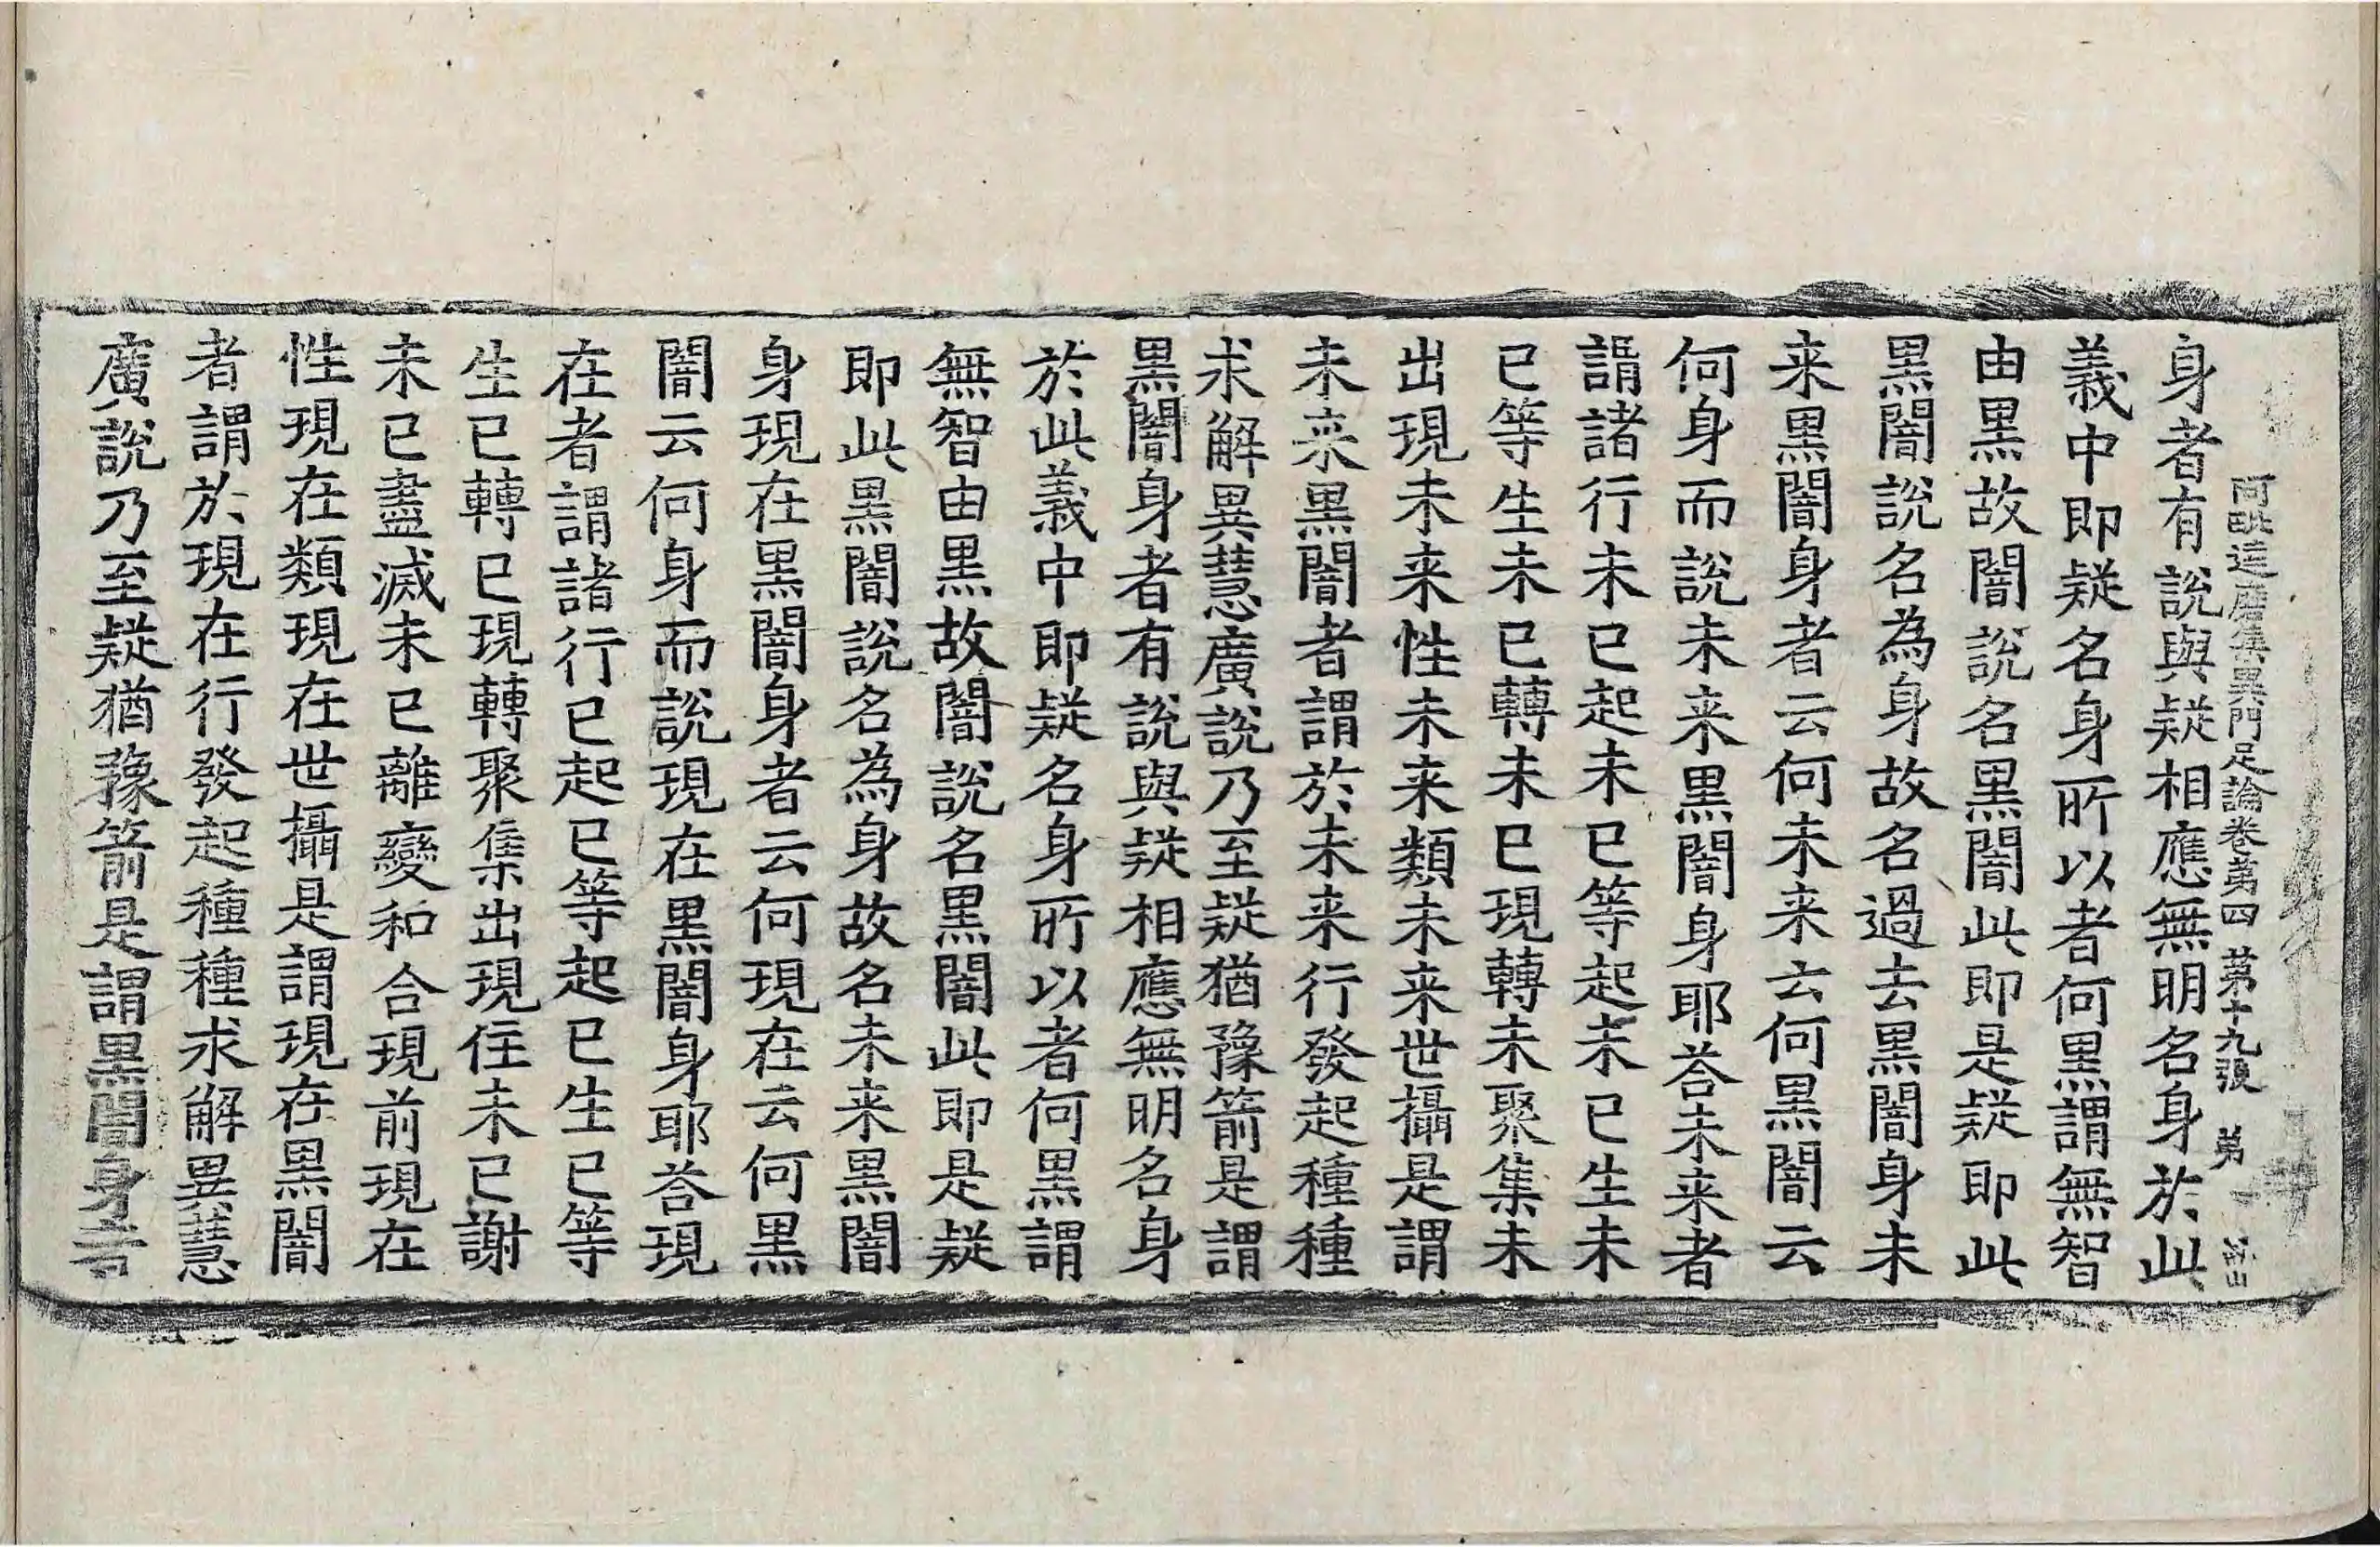 阿毗達磨集異門足論卷苐四 苐十九張 弟
身者有說與疑相應無明名身於此
義中即疑名身所以者何黒謂無智
由黒故闇說名黒闇此即是疑即此
黒闇說名為身故名過去黒闇身未
来黒闇身者云何未来云何黒闇云
何身而說未来黒闇身耶荅未来者
謂諸行未已起未已等起未已生未
已等生未已轉未已現轉未聚集未
出現未来性未来類未来世攝是謂
未来黒闇者謂於未来行發起種種
求解異慧廣說乃至疑猶豫箭是謂
黒闇身者有說與疑相應無明名身
於此義中即疑名身所以者何黒謂
無智由黒故闇說名黒闇此即是疑
即此黒闇說名為身故名未来黒闇
身現在黒闇身者云何現在云何黒
闇云何身而說現在黒闇身耶荅現
在者謂諸行已起已等起已生已等
生已轉已現轉聚集出現住未已謝
未已盡滅未已離變和合現前現在
性現在類現在世攝是謂現在黒闇
者謂於現在行發起種種求解異慧
廣說乃至疑猶豫箭是謂黒闇身者